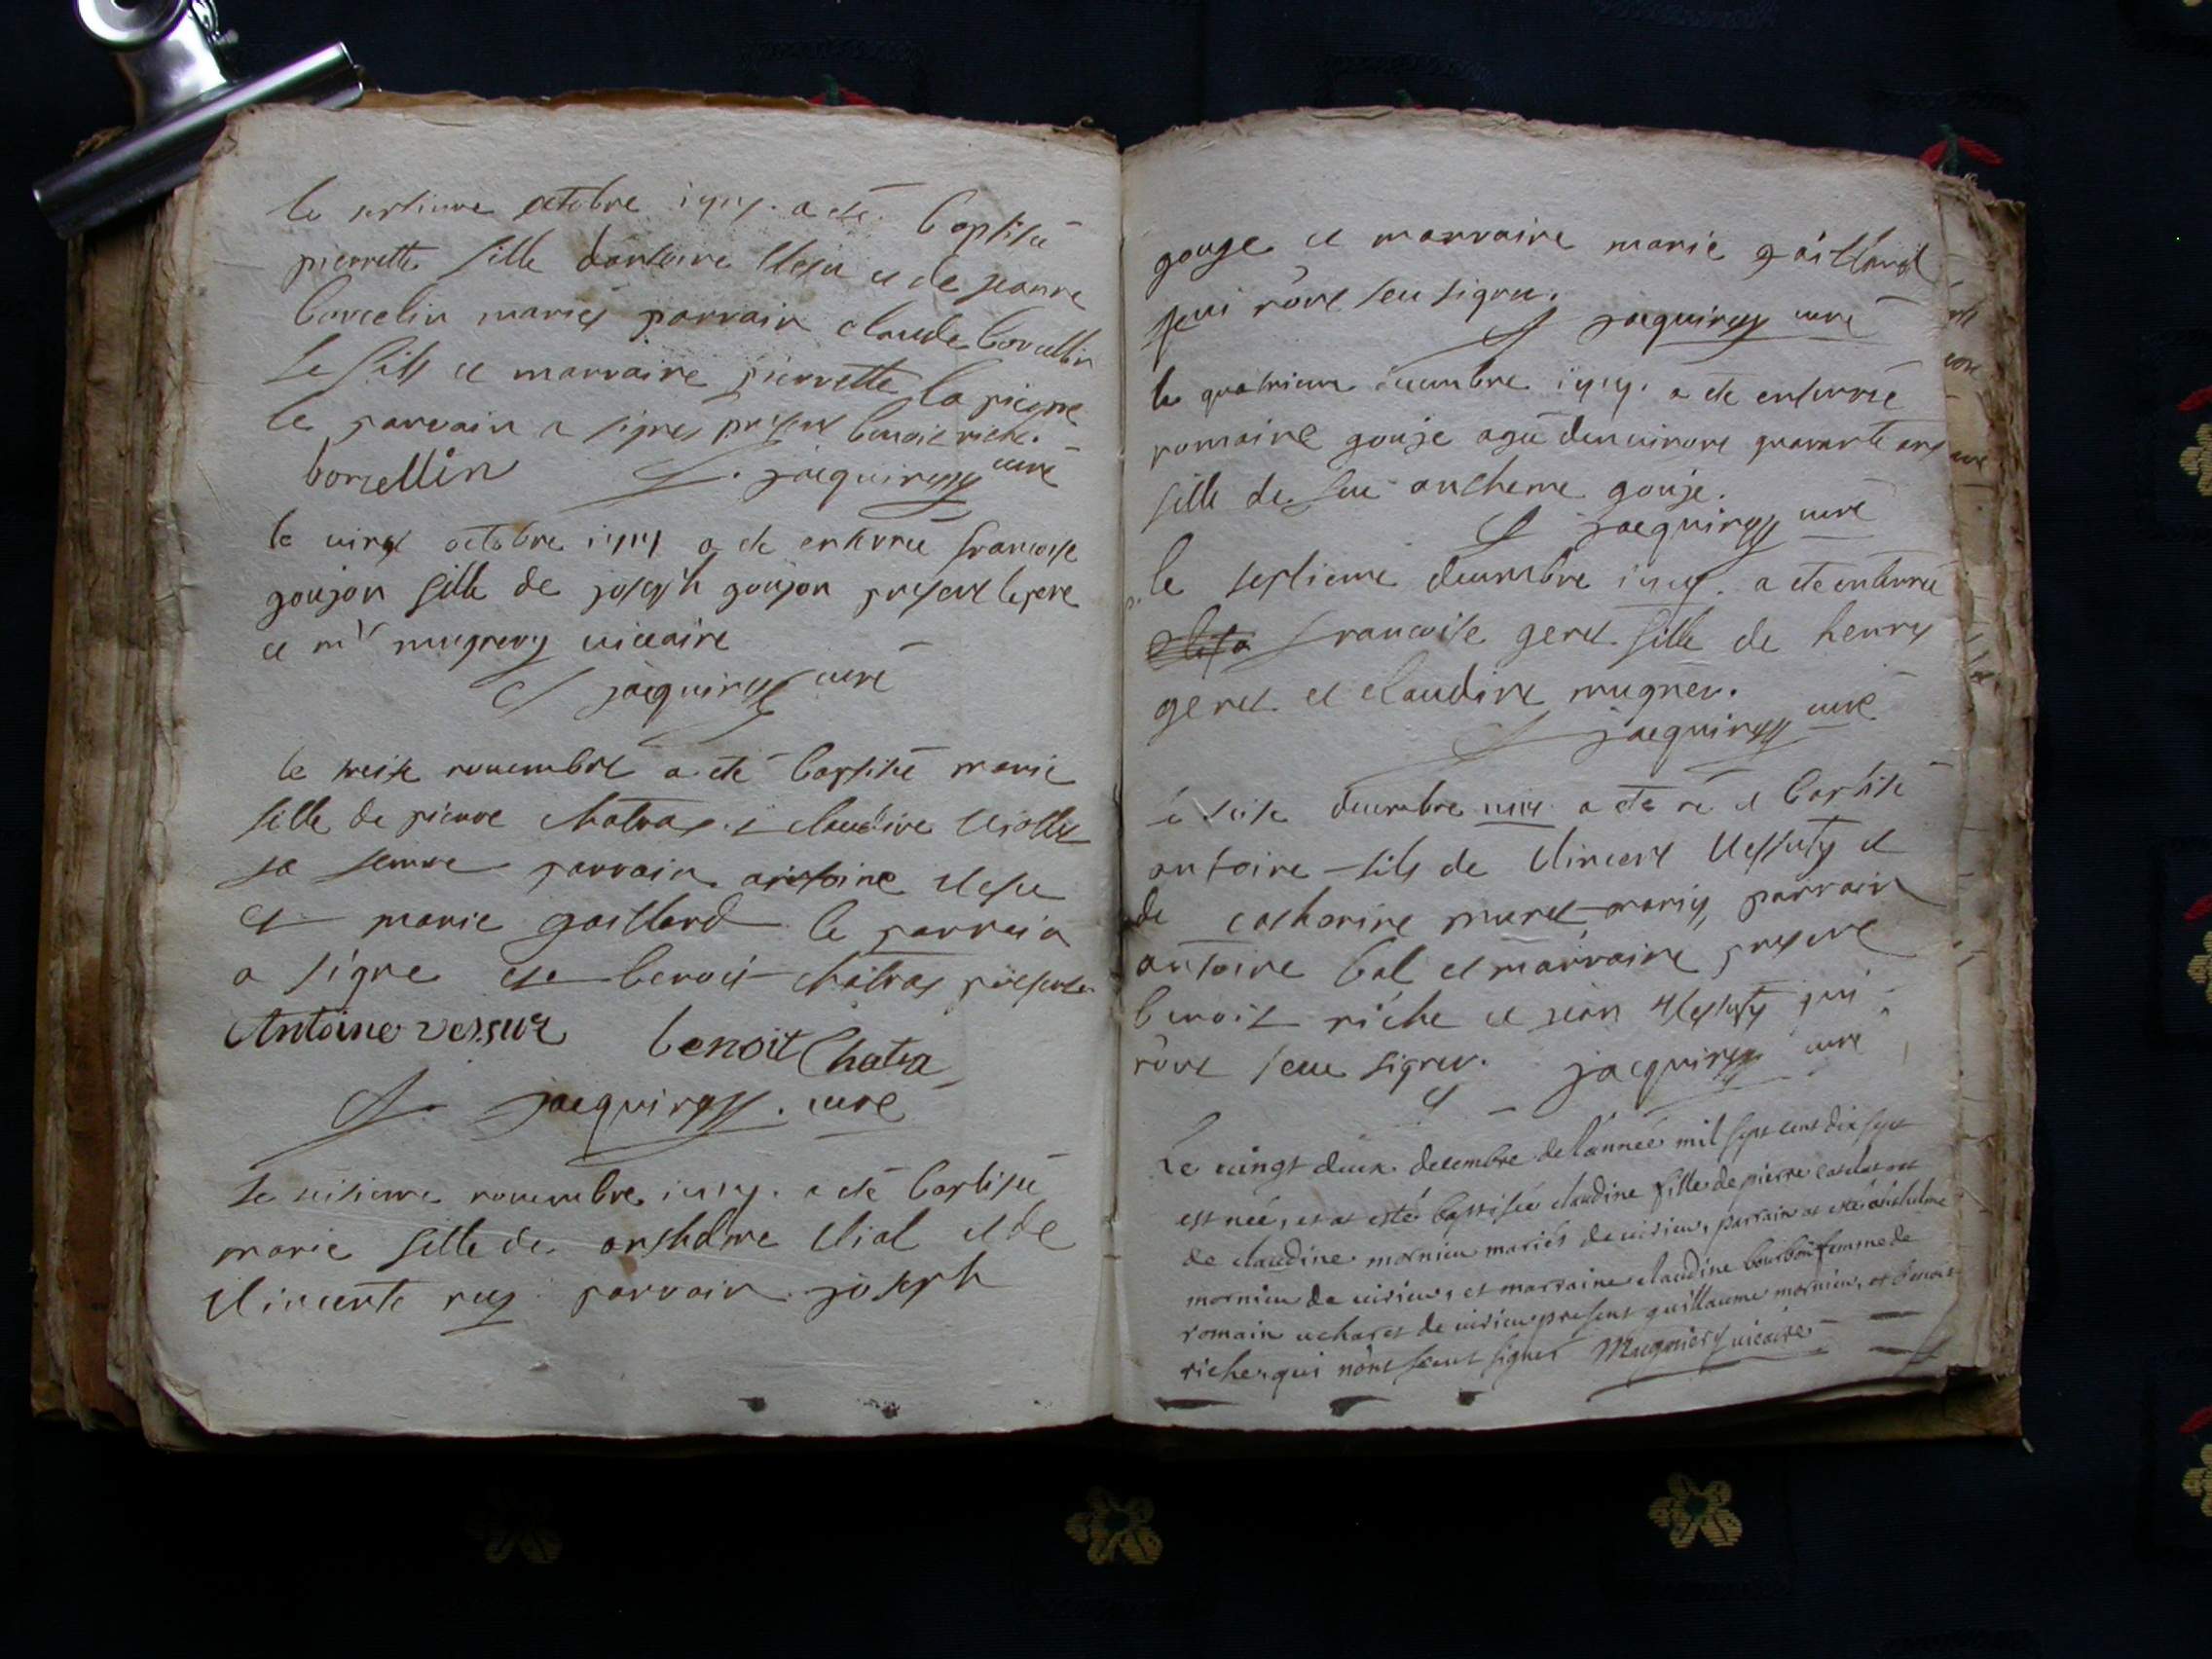 le septieme octobre 1717. a été baptisée
pierrette fille dantoine Vesu et de jeanne
borcelin mariés parrain claude borcellin
le fils et marraine pierrette la pierre
le parrain a signé present benoit riche.
borcellin jacquiress curé
le vingt octobre 1717 a été enterrée francoise
goujon fille de joseph goujon present le pere
et mr mugnery vicaire
jacquiress curé
le treise novembre a été baptisée marie
fille de pierre chatras et claudine
sa femme parrain antoine Vesu
et marie gaillard le parrain
a signé et benoit chatras present
Antoine vessur benoit Chatra
jacquiress. curé
le novembre 1717. a été baptisée
marie fille de. anthelme Vial et de
Vincente rey parrain joseph
gouje et marraine marie gaillard
qui n'ont seu signer.
jacquiress curé
le quatrieme decembre 1717. a été enterrée
romaine gouje agée denviront quarante ans
fille de feu anthelme gouje.
jacquiress curé
le septieme decembre 1717. a été enterrée
francoise geret fille de henry
geret et claudine mugner.
jacquiress curé
decembre 1717 a été né et baptisé
antoine fils de Vincent et
de catherine muret mariés, parrain
antoine bal et marraine present
benoit riche et jean qui
n'ont seu signer. jacquiress curé
Le vingt deux decembre de l'année mil sept cent dix sept
est née, et at esté baptisée claudine fille de pierre
de claudine mornieu mariés de virieu, parrain at esté anthelme
mornieu de virieu, et marraine claudine bourbon femme de
romain de virieu present guillaume mornieu, et benoit
riche, qui n'ont sceut signer Mugniery vicaire